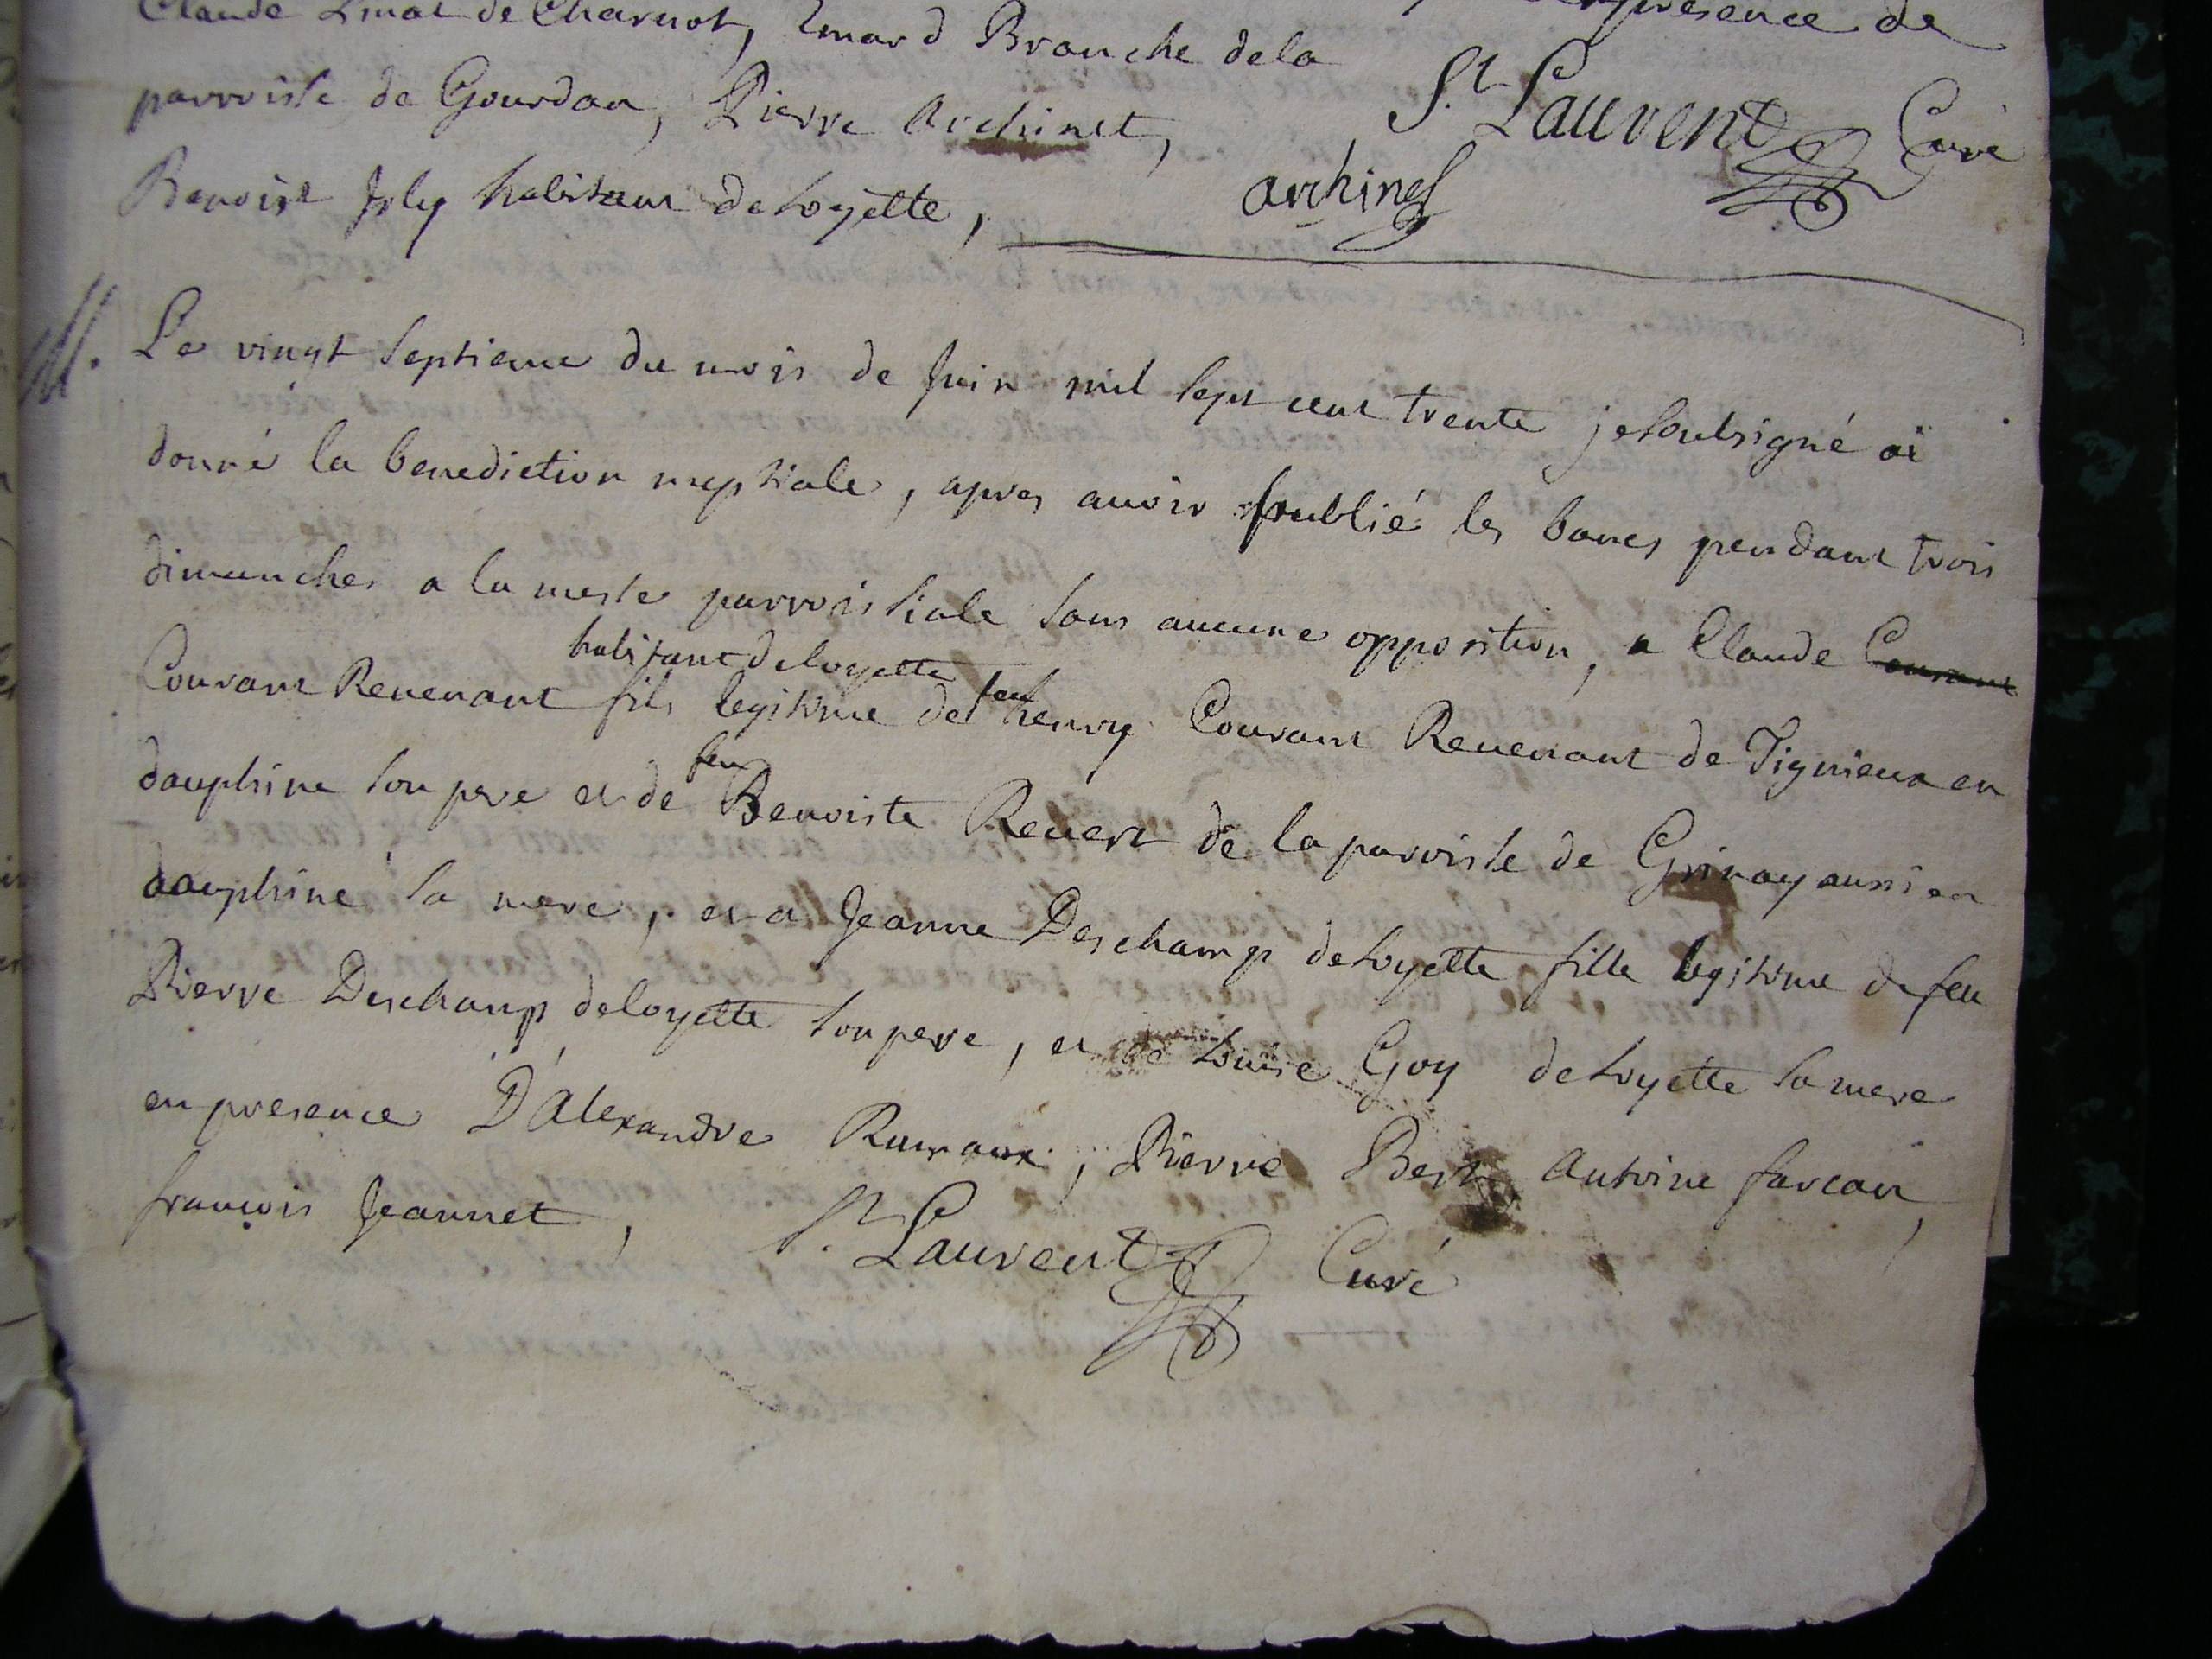 Claude de Charnot, Emard Branche dela
presence de
parroisse de Gourdan, Pierre Archinet,
St Laurent Curé
Benoist Joly habitans deloyette,
archinet
M. Le vingt septieme du mois de Juin mil sept cent trente je soubsigné ai
donné la benediction nuptiale, apres avoir publié les bancs pendant trois
dimanches a la messe parroissiale sans aucune opposition, a Claude Courant
habitant deloyette feu
Courant Revenant fils legitime de henry Courant Revenant de Tignieux en
feu
dauphine son pere et de Benoiste Revert de la paroisse de Grinay aussi en
dauphiné sa mere, et a Jeanne Deschamp deloyette fille legitime de feu
Pierre Deschamp deloyette son pere, et de Louise Goy deloyette sa mere
en presence D'Alexandre Pierre Antoine
françois Jeannet, St Laurent Curé